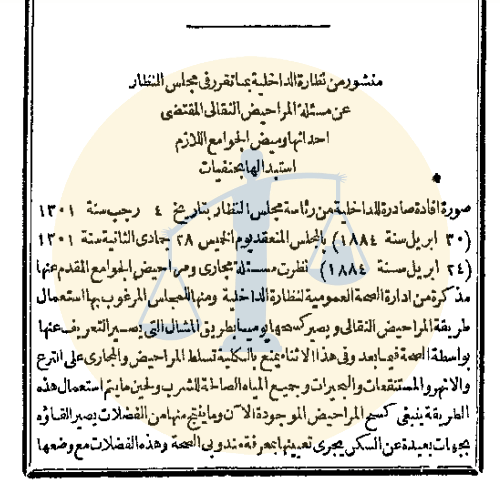 منشور من نظارة الداخلية بما تقرر فى مجلس النظار
عن مسئلة المراحيض النقالى المقتضى
احداثها وميض الجوامع اللازم
استبدالها بحنفيات
صورة افادة صادرة للداخلية من رئاسة مجلس النظار بتاريخ ٤ رجب سنة ١٣٠١
(٣٠ ابريل سنة ١٨٨٤) بالمجلس المنعقد يوم الخميس ٢٨ جمادى الثانية سنة ١٣٠١
(٢٤ ابريل سنة ١٨٨٤) نظرت مسئلة مجارى ومراحيض الجوامع المقدم عنها
مذكرة من ادارة الصحة العمومية لنظارة الداخلية ومنها للمجلس المرغوب بها استعمال
طريقة المراحيض النقالى ويصير كسحها يوميا بطريق المثال التى يصير التعريف عنها
بواسطة الصحة فيما بعد وفى هذا الاثناء يمنع بالكلية تسلط المراحيض والمجارى على الترع
والانهر والمستنقعات والبحيرات وجميع المياه الصالحة للشرب ولحين ما يتم استعمال هذه
الطريقة ينبغى كسح المراحيض الموجودة الآن وما ينتج منها من الفضلات يصير القاؤه
بجهات بعيدة عن السكن يجرى تعيينها بمعرفة مندوبى الصحة وهذه الفضلات مع وضعها